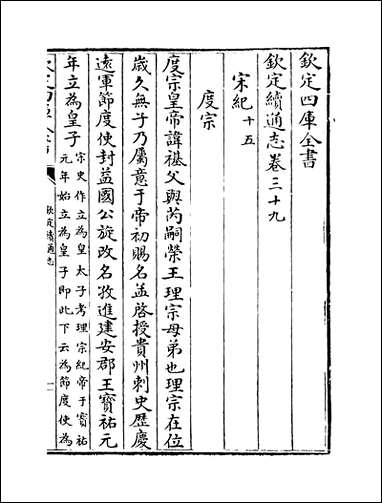 欽定四庫全書
欽定續通志卷三十九
宋紀十五
度宗
度宗皇帝諱禥父與芮嗣榮王理宗母弟也理宗在位
歲久無子乃屬意于帝初賜名孟啓授貴州刺史歷慶
遠軍節度使封益國公旋改名孜進建安郡王寶祐元
年立為皇子宋史作立為皇太子考理宗紀帝于寶祐
元年始立為皇子即此下云為節度使為
欽定續通志
一